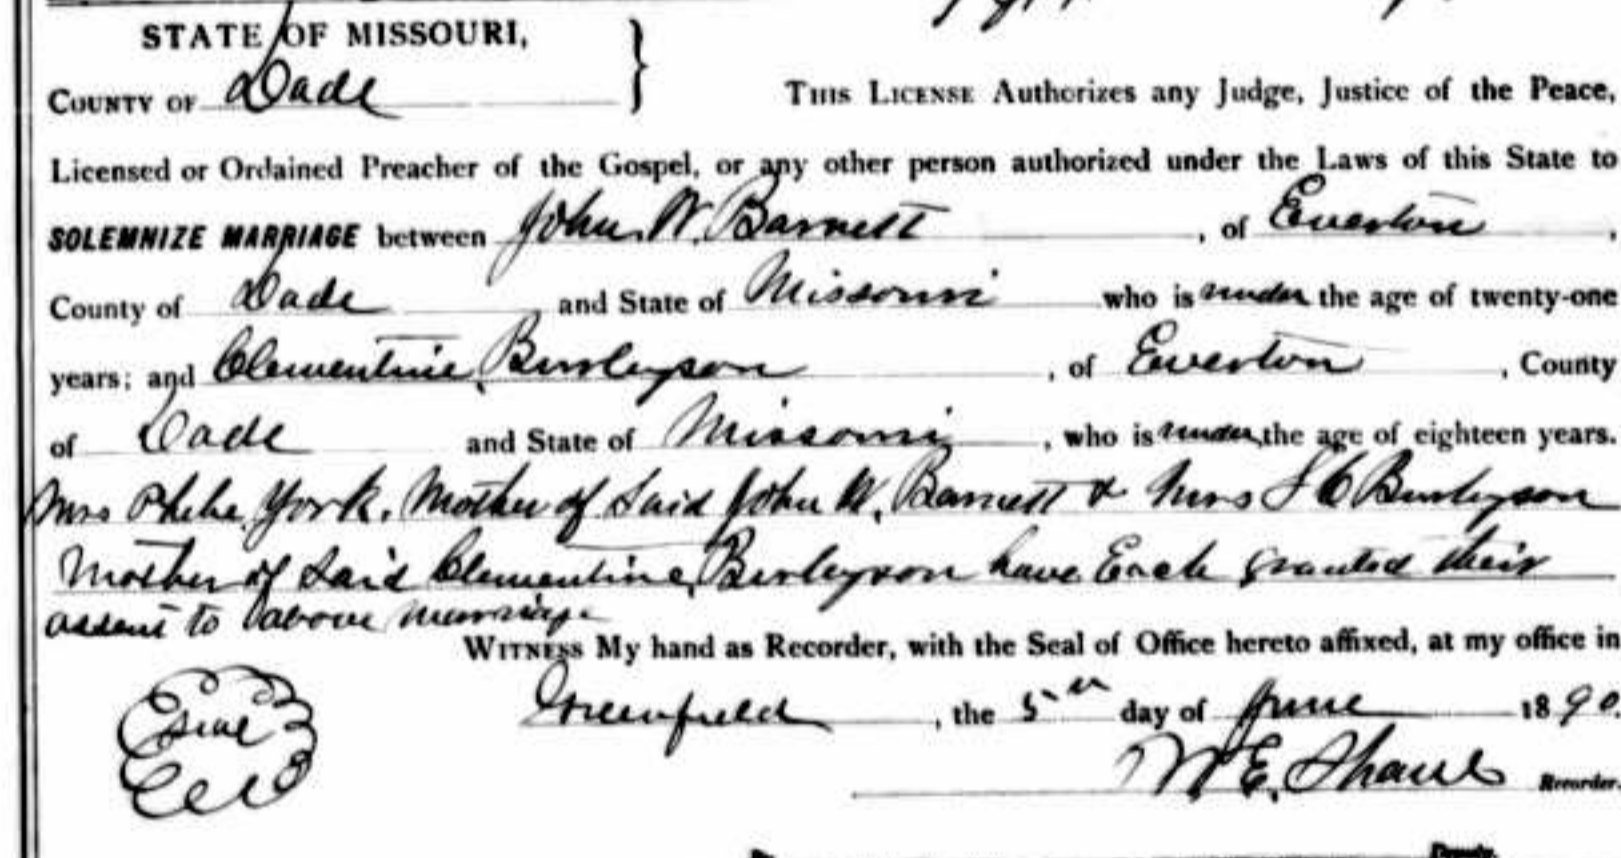 STATE OF MISSOURI,
COUNTY OF Dade
THIS LICENSE Authorizes any Judge, Justice of the Peace,
Licensed or Ordained Preacher of the Gospel, or any other person authorized under the Laws of this State to
SOLEMNIZE MARRIAGE between John W. Barnett, of Everton,
County of Dade and State of Missouri who is under the age of twenty-one
years; and Clementine Burleyson, of Everton, County
of Dade and State of Missouri, who is under the age of eighteen years.
Mrs Phebe York. Mother of Said John W. Barnett & Mrs S C Burleyson
Mother of Said Clementine Burleyson have Each granted their
assent to above marriage
WITNESS My hand as Recorder, with the Seal of Office hereto affixed, at my office in
Greenfield, the 5th day of June 1890.
Seal
W. E. Recorder.
County